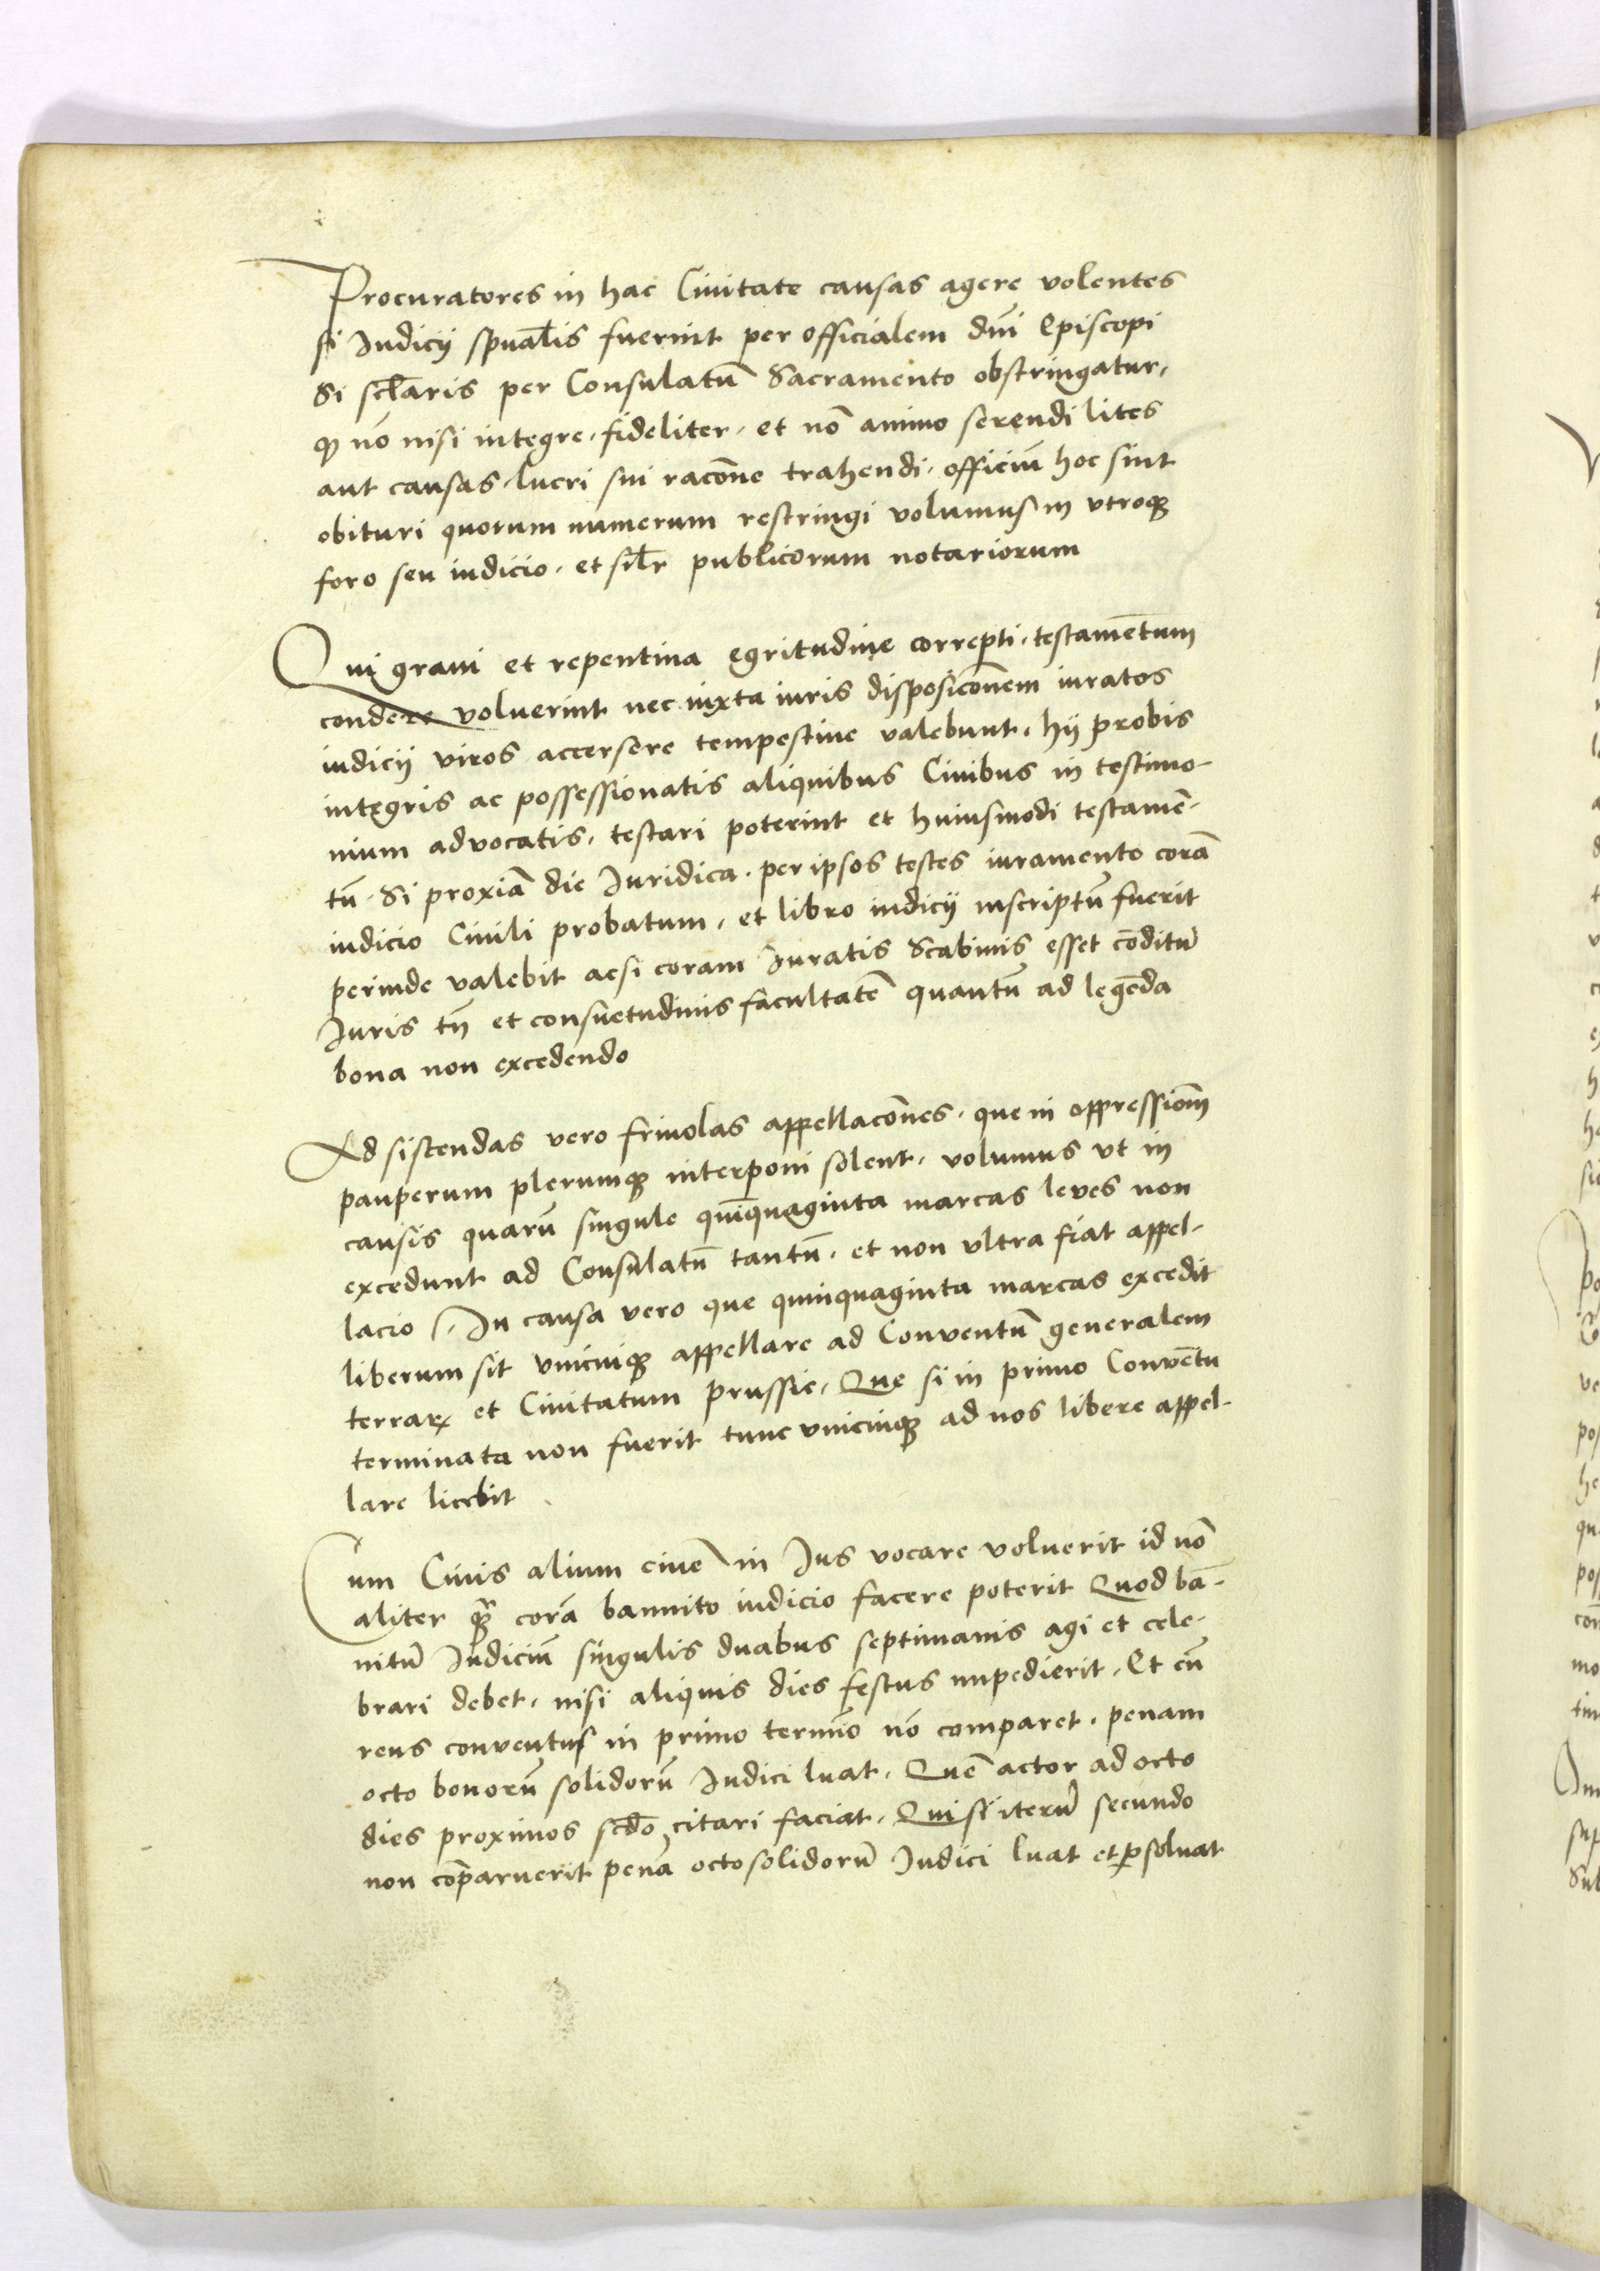 Procuratores in hac Ciuitate causas agere volentes
si Iudicij spualis fuerint per officialem dni Episcopi
Si sclaris per Consulatū Sacramento obstringatur,
q nō nisi integre, fideliter, et nō animo serendi lites
aut causas, lucri sui racōne trahendi, officiū hoc sint
obituri quorum numerum restringi volumus in vtroq
foro seu iudicio, et silr publicorum notariorum
Qui graui et repentina egritudine correpti, testamētum
condere voluerint nec iuxta iuris disposicōnem iuratos
iudicij viros accersere tempestiue valebunt, hij probis
integris ac possessionatis aliquibus Ciuibus in testimo-
nium aduocatis, testari poterint et huiusmodi testamē-
tū. Si proxiā die Iuridica, per ipsos testes iuramento corā
iudicio Ciuili probatum, et libro iudicij inscriptū fuerit
perinde valebit acsi coram Iuratis Scabinis esset cōditū
Iuris tn̄ et consuetudinis facultatē quantū ad legēda
bona non excedendo
Ad sistendas vero friuolas appellacōnes, que in oppressionē
pauperum plerumq interponi solent, volumus vt in
causis quarū singule quīquaginta marcas leues non
excedunt ad Consulatū tantū, et non vltra fiat appel-
lacio /, In causa vero que quinquaginta marcas excedit
liberum sit vnicuiq appellare ad Conuentū generalem
terrar et Ciuitatum prussie, Que si in primo Conuētu
terminata non fuerit tunc vnicuiq ad nos libere appel-
lare licebit
Cum Ciuis alium ciuē in Ius vocare voluerit id nō
aliter q̄ corā bannito iudicio facere poterit Quod bā-
nitū Iudiciū singulis duabus septimanis agi et cele-
brari debet, nisi aliquis dies festus impedierit, Et cū
reus conuentus in primo termīo nō comparet, penam
octo bonorū solidorū Iudici luat, Quē actor ad octo
dies proximos scdo citari faciat, Qui si iterū secundo
non cōparuerit penā octo solidorū Iudici luat et psoluat